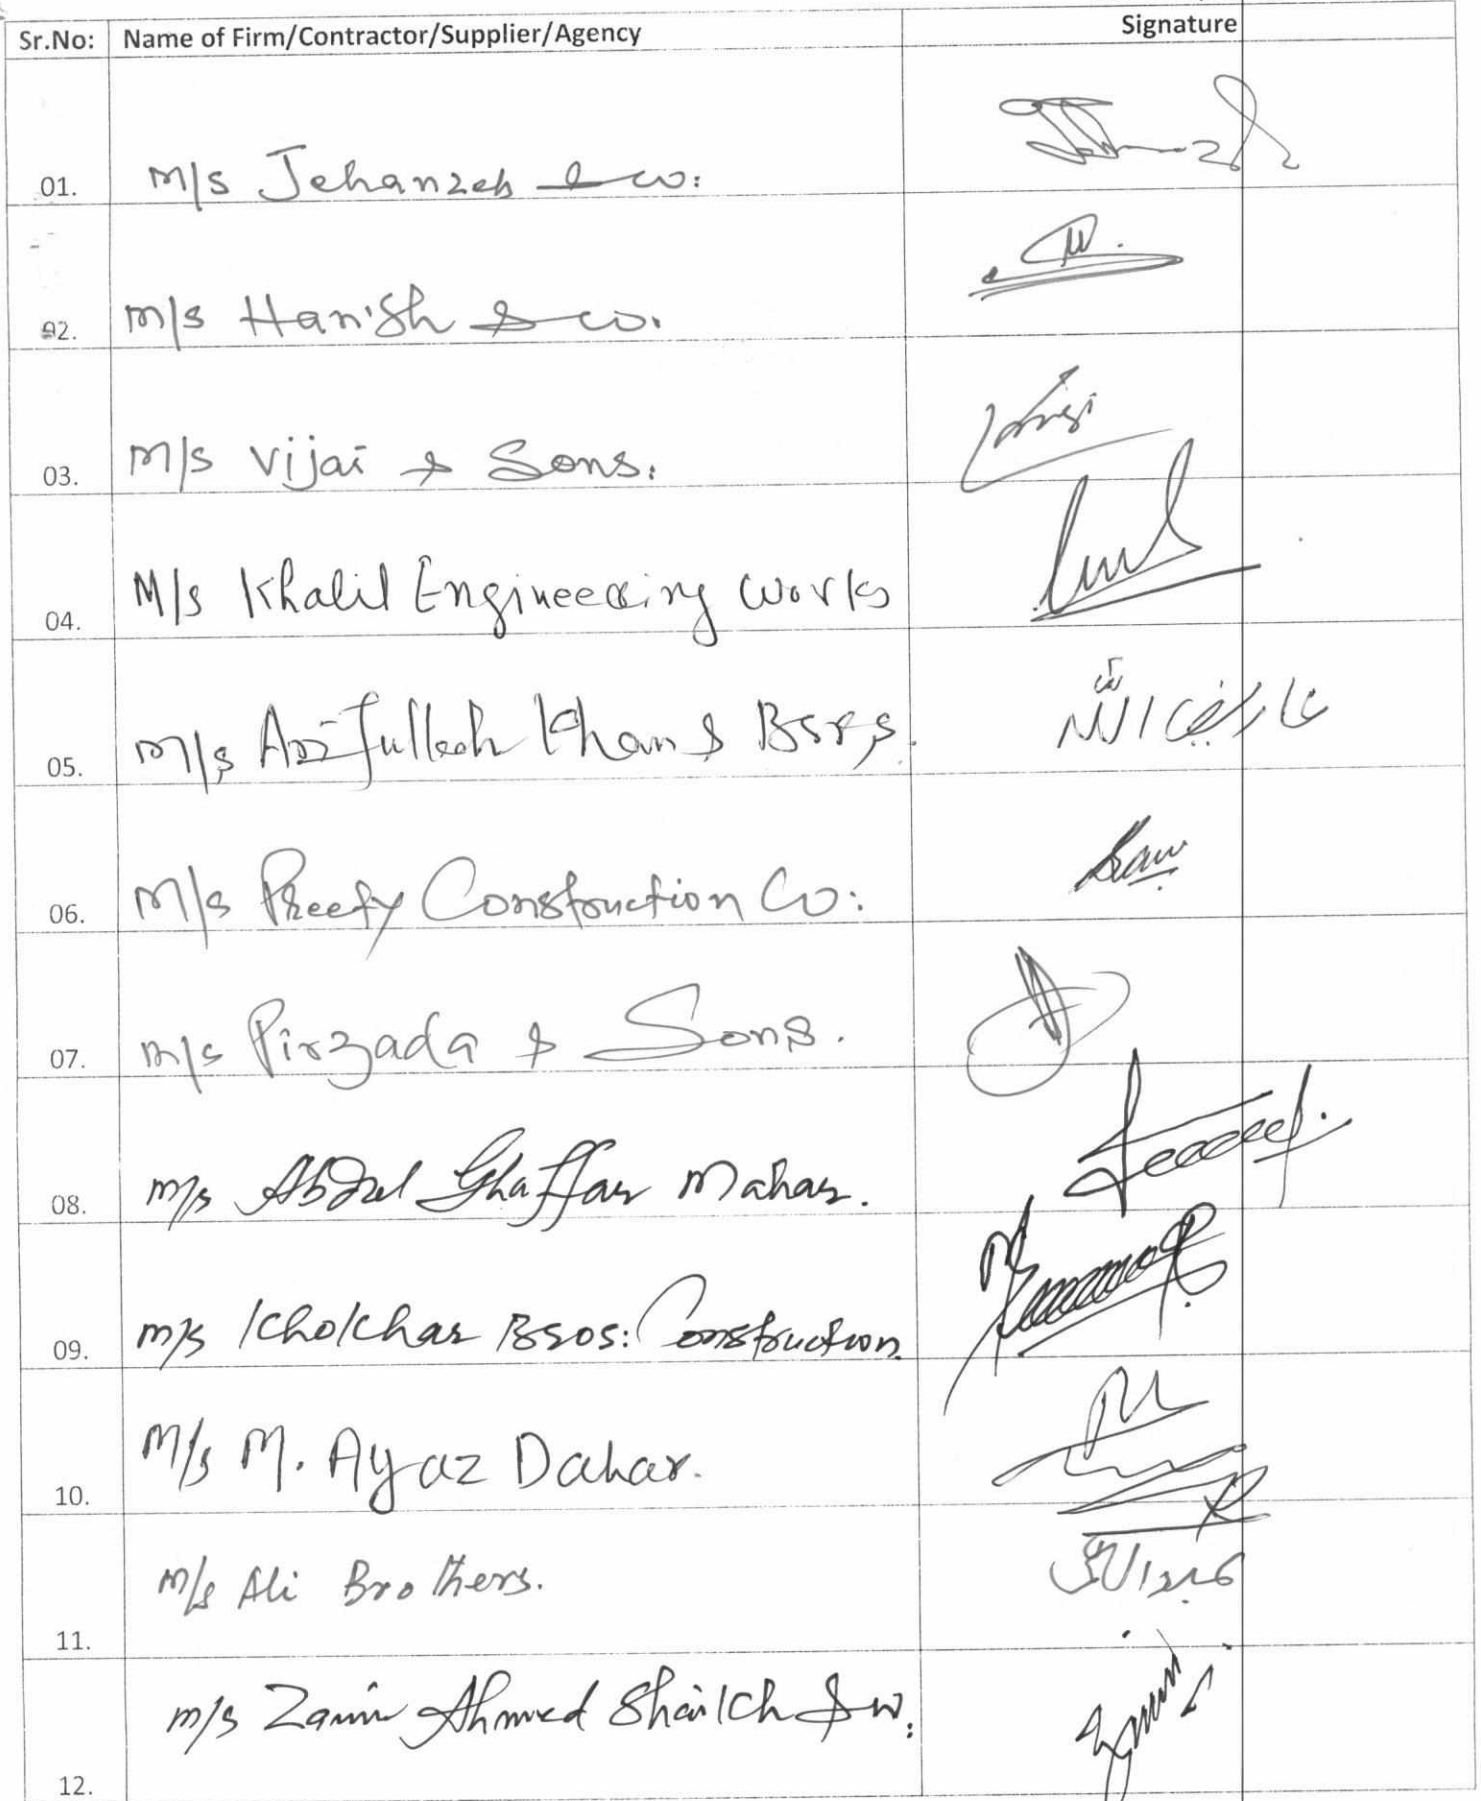 Sr.No: Name of Firm/Contractor/Supplier/Agency Signature
01. M/s Jehanzeb & co:
02. M/s Harish & co.
03. M/s Vijai & Sons:
04. M/s Khalil Engineering Works
05. M/s Arifullah Khan & Bros. عارف اللہ
06. M/s Preety Construction Co:
07. M/s Pirzada & Sons.
08. M/s Abdul Ghaffar Mahar.
09. M/s Khokhar Bros: Construction
10. M/s M. Ayaz Dahar.
11. M/s Ali Brothers.
12. M/s Zamir Ahmed Shaikh & co: